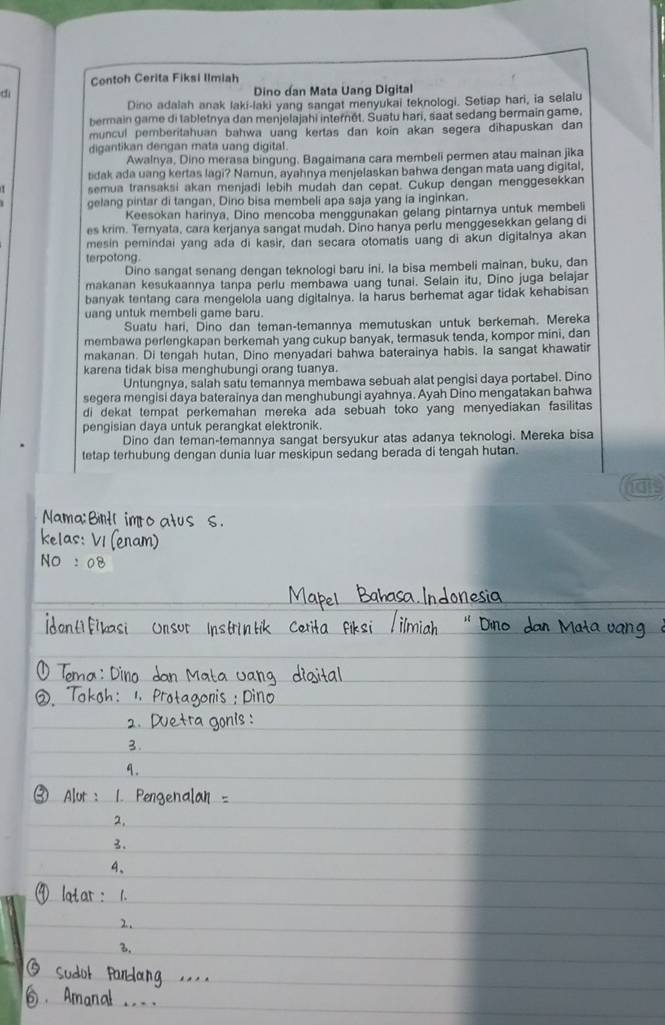 di
Contoh Cerita Fiksi Ilmiah
Dino dan Mata Uang Digital
Dino adalah anak laki-laki yang sangat menyukai teknologi. Setiap hari, ia selalu
bermain game di tabletnya dan menjelajahi internet. Suatu hari, saat sedang bermain game,
muncul pemberitahuan bahwa uang kertas dan koin akan segera dihapuskan dan
digantikan dengan mata uang digital.
Awalnya, Dino merasa bingung. Bagaimana cara membeli permen atau mainan jika
tidak ada uang kertas lagi? Namun, ayahnya menjelaskan bahwa dengan mata uang digital,
semua transaksi akan menjadi lebih mudah dan cepat. Cukup dengan menggesekkan
gelang pintar di tangan, Dino bisa membeli apa saja yang ia inginkan.
Keesokan harinya, Dino mencoba menggunakan gelang pintarnya untuk membeli
es krim. Ternyata, cara kerjanya sangat mudah. Dino hanya perlu menggesekkan gelang di
mesin pemindai yang ada di kasir, dan secara otomatis uang di akun digitalnya akan
terpotong.
Dino sangat senang dengan teknologi baru ini. Ia bisa membeli mainan, buku, dan
makanan kesukaannya tanpa perlu membawa uang tunai. Selain itu, Dino juga belajar
banyak tentang cara mengelola uang digitalnya. Ia harus berhemat agar tidak kehabisan
uang untuk membeli game baru.
Suatu hari, Dino dan teman-temannya memutuskan untuk berkemah. Mereka
membawa perlengkapan berkemah yang cukup banyak, termasuk tenda, kompor mini, dan
makanan. Di tengah hutan, Dino menyadari bahwa baterainya habis. Ia sangat khawatir
karena tidak bisa menghubungi orang tuanya.
Untungnya, salah satu temannya membawa sebuah alat pengisi daya portabel. Dino
segera mengisi daya baterainya dan menghubungi ayahnya. Ayah Dino mengatakan bahwa
di dekat tempat perkemahan mereka ada sebuah toko yang menyediakan fasilitas
pengisian daya untuk perangkat elektronik.
Dino dan teman-temannya sangat bersyukur atas adanya teknologi. Mereka bisa
tetap terhubung dengan dunia luar meskipun sedang berada di tengah hutan.
Nama: S.
kelas: VI (enam)
NO : 08
Mapel Bahasa. Indonesia
identifikasi Unsur instrintik Cerita fiksi /ilmiah " Dino dan Mata uang
① Tema: Dino dan Mata uang digital
②. Tokoh: 1. Protagonis: Dino
2. Duetra gonis:
3.
4.
③ Alur: 1. Pengenalan =
2.
3.
4.
④ latar: 1.
2.
3.
⑤ sudut Pandang ....
⑥. Amanat ....